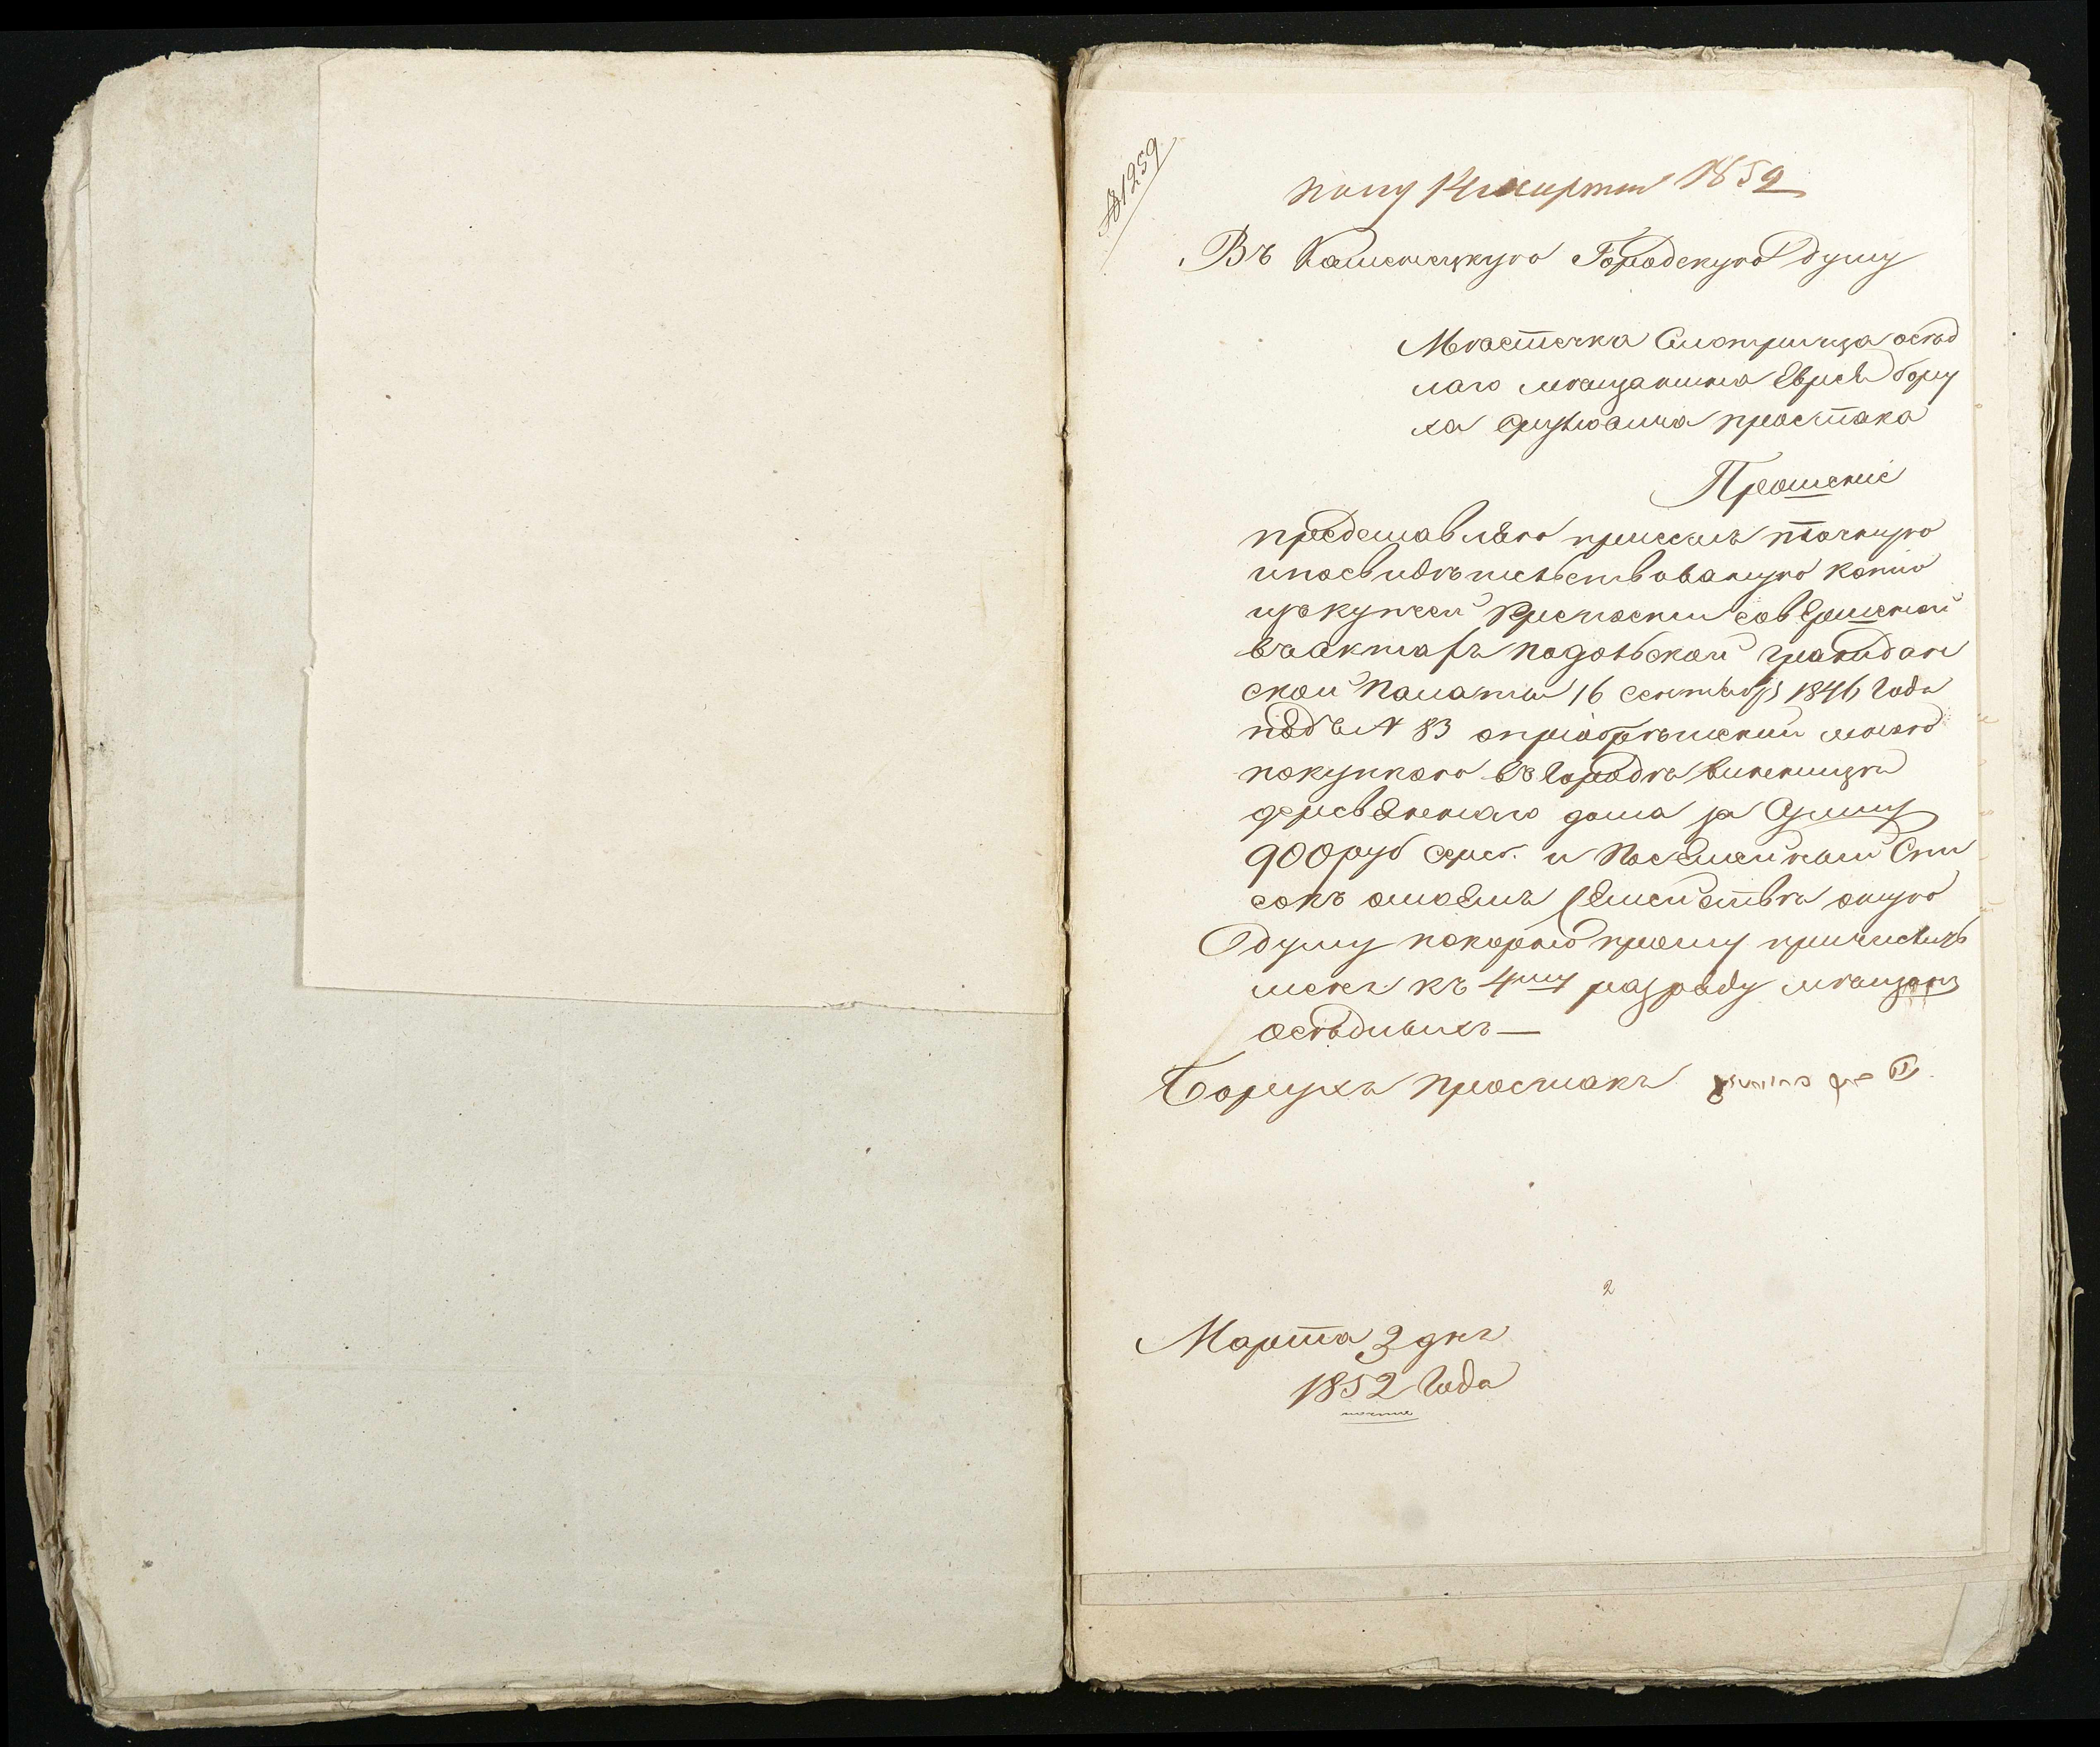 № 1259
полу 14 марта 1852
Въ Каменецкую Городскую Думу
Мѣстечка Смотрича осѣд
лаго мѣщанина Еврея Бору
ха Простака
Прошеніе
представляя присемъ точную
и посвидѣтельствованую копію
изъ купчей крѣпости совершеной
въ актахъ Подольской граждан
ской Палаты 16 сентября 1846 года
подъ N 83 о пріобрѣтеніи мною
покупкою въ городѣ Винницѣ
деревяннаго дома за Сумму
900 руб сереб. и Посемейный Спи
сокъ о моемъ семействѣ оную
Думу покорно прошу причислить
меня къ 4му разряду мѣщанъ
осѣдлыхъ —
Борухъ Простакъ
2
Марта 3 дня
1852 года